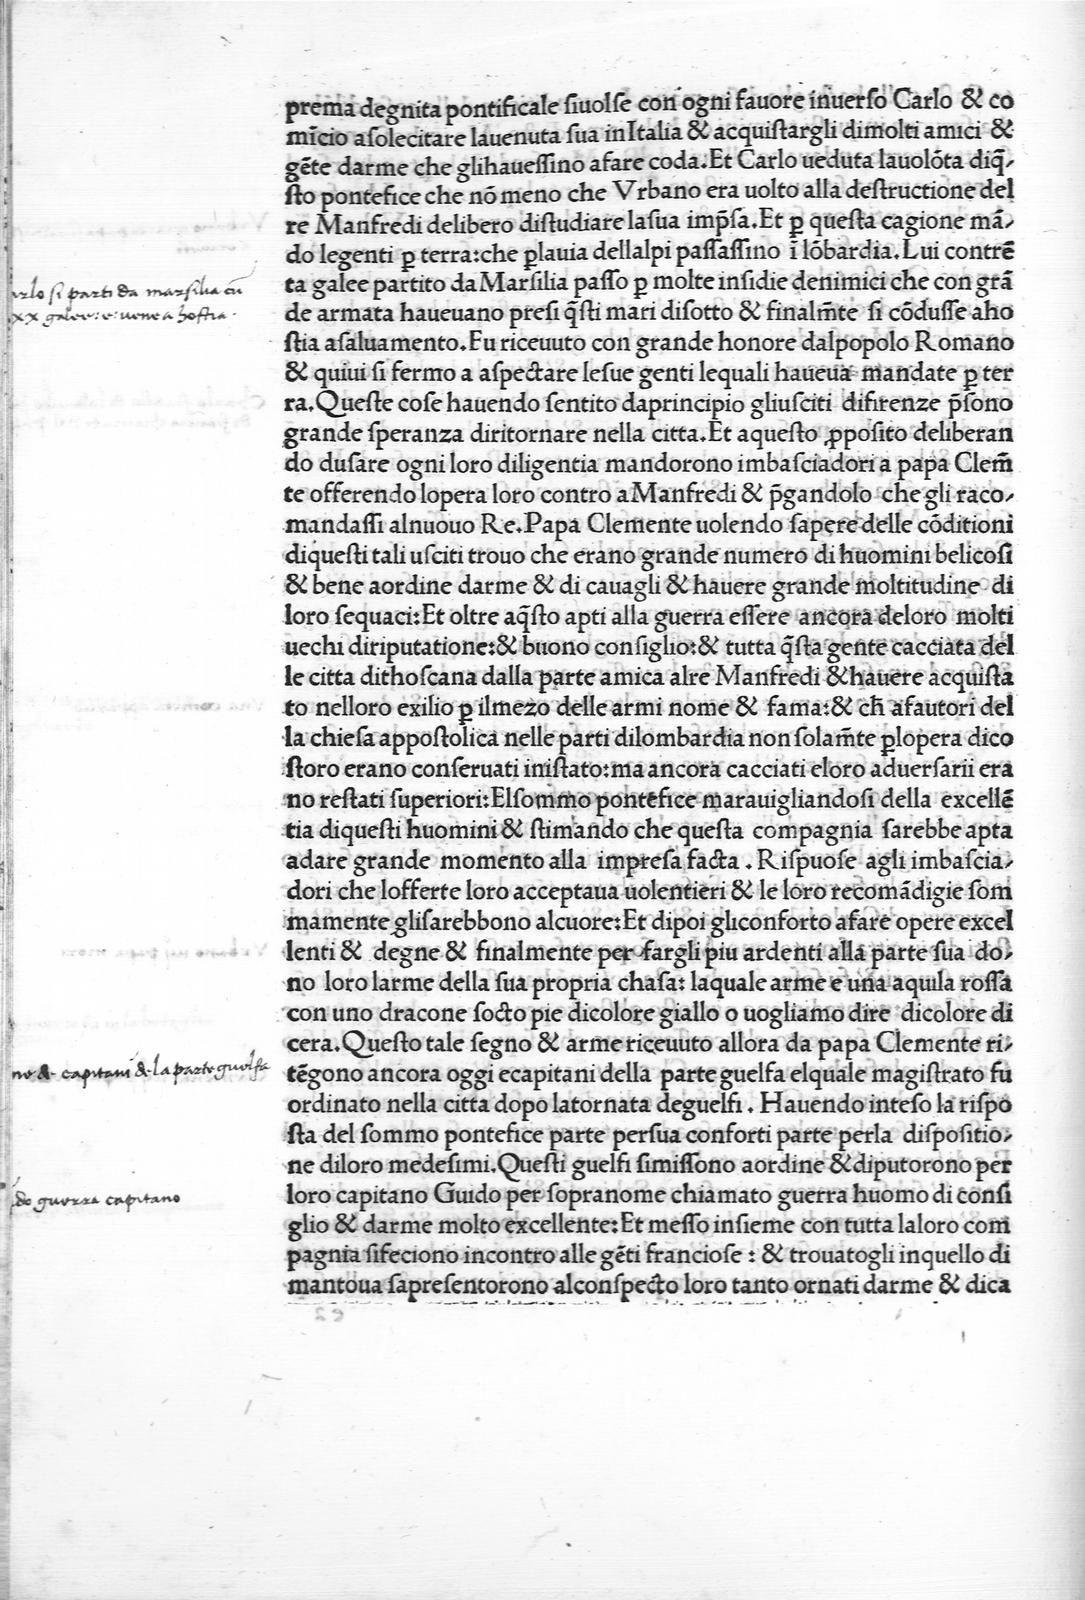 prema degnita pontificale ſiuolſe con ogni fauore inuerſo Carlo & co
mīcio aſolecitare lauenuta ſua inItalia & acquiſtargli dimolti amici &
gēte darme che glihaueſſino afare coda.Et Carlo ueduta lauolōta diq̄-
ſto pontefice che nō meno che Vrbano era uolto alla deſtructione del
re Manfredi delibero diſtudiare laſua imp̄ſa.Et ꝑ queſta cagione mā-
do legenti ꝑ terra:che ꝑlauia dellalpi paſſaſſino ī lōbardia.Lui contrē
ta galee partito da Marſilia paſſo ꝑ molte inſidie denimici che con grā
de armata haueuano preſi q̄ſti mari diſotto & finalm̄te ſi cōduſſe aho
ſtia aſaluamento.Fu riceuuto con grande honore dalpopolo Romano
& quiui ſi fermo a aſpectare leſue genti lequali haueua mandate ꝑ ter
ra.Queſte coſe hauendo ſentito daprincipio gliuſciti difirenze p̄ſono
grande ſperanza diritornare nella citta.Et aqueſto ꝓpoſito deliberan
do duſare ogni loro diligentia mandorono imbaſciadori a papa Clem̄
te offerendo lopera loro contro aManfredi & p̄gandolo che gli raco-
mandaſſi alnuouo Re.Papa Clemente uolendo ſapere delle cōditioni
diqueſti tali uſciti trouo che erano grande numero di huomini belicoſi
& bene aordine darme & di cauagli & hauere grande moltitudine di
loro ſequaci:Et oltre aq̄ſto apti alla guerra eſſere ancora deloro molti
uechi diriputatione:& buono conſiglio:& tutta q̄ſta gente cacciata del
le citta dithoſcana dalla parte amica alre Manfredi & hauere acquiſta
to nelloro exilio ꝑ ilmezo delle armi nome & fama:& ch̄ afautori del
la chieſa appoſtolica nelle parti dilombardia non ſolam̄te ꝑlopera dico
ſtoro erano conſeruati iniſtato:ma ancora cacciati eloro aduerſarii era
no reſtati ſuperiori:Elſommo pontefice marauigliandoſi della excellē
tia diqueſti huomini & ſtimando che queſta compagnia ſarebbe apta
adare grande momento alla impreſa facta . Riſpuoſe agli imbaſcia-
dori che lofferte loro acceptaua uolentieri & le loro recomādigie ſom
mamente gliſarebbono alcuore:Et dipoi gliconforto afare opere excel
lenti & degne & finalmente per fargli piu ardenti alla parte ſua do-
no loro larme della ſua propria chaſa: laquale arme e una aquila roſſa
con uno dracone ſocto pie dicolore giallo o uogliamo dire dicolore di
cera.Queſto tale ſegno & arme riceuuto allora da papa Clemente ri-
tēgono ancora oggi ecapitani della parte guelfa elquale magiſtrato fu
ordinato nella citta dopo latornata deguelfi . Hauendo inteſo la riſpo
ſta del ſommo pontefice parte perſua conforti parte perla diſpoſitio-
ne diloro medeſimi.Queſti guelfi ſimiſſono aordine & diputorono per
loro capitano Guido per ſopranome chiamato guerra huomo di conſi
glio & darme molto excellente:Et meſſo inſieme con tutta laloro com
pagnia ſifeciono incontro alle gēti francioſe : & trouatogli inquello di
mantoua ſapreſentorono alconſpecto loro tanto ornati darme & dica
rlo ſi parti da marſilia cū
xx galee: e uene a hoſtia.
ne & capitani de la parte guelfa
do guerra capitano